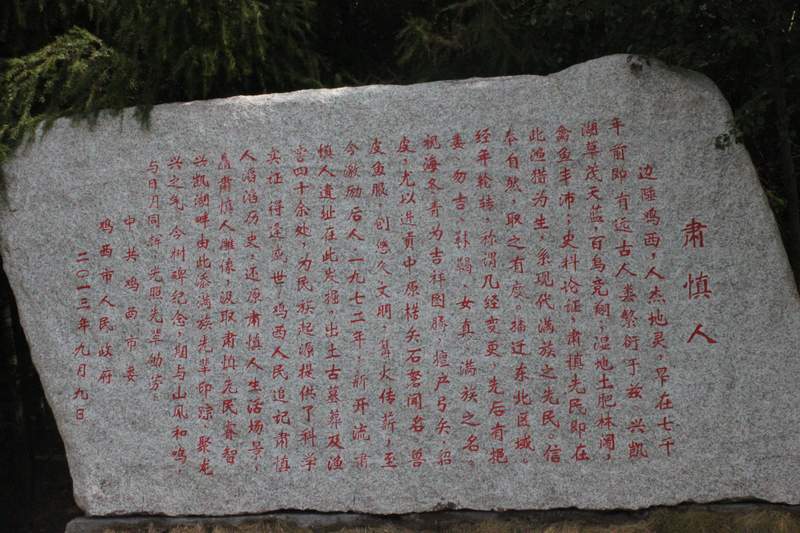 肃慎人
边陲鸡西，人杰地灵，早在七千
年前即有远古人类繁衍于兹，兴凯
湖草茂天蓝，百鸟竞翔，湿地土肥林阔，
禽鱼丰沛；史料论证，肃慎先民即在
此渔猎为生，系现代满族之先民。信
奉自然，取之有度，播迁东北区域。
经年轮转，称谓几经变更，先后有挹
娄、勿吉、靺鞨、女真、满族之名。
视海东青为吉祥图腾，擅产弓矢、貂
皮，尤以进贡中原楛矢石砮闻名，兽
皮鱼服，创悠久文明，薪火传薪，至
今激励后人。一九七二年，新开流肃
慎人遗址在此发掘，出土古墓葬及渔
窖四十余处，为民族起源提供了科学
实证。得逢盛世，鸡西人民追记肃慎
人滔滔历史，还原肃慎人生活场景，
肃慎人雕像，汲取肃慎先民睿智
兴凯湖畔由此添满族先辈印踪，聚龙
兴之气，今州碑纪念，期与山风和鸣，
与日月同辉，光照先辈勋劳。
中共鸡西市委
鸡西市人民政府
二〇一三年九月九日